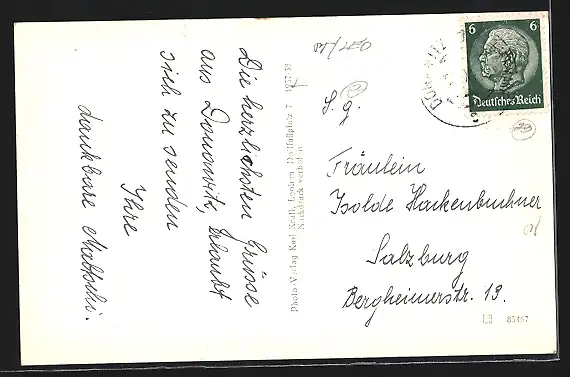 Die herzlichsten Grüsse
aus Donawitz, erlaubt
sich zu senden
Ihre
dankbare
Photo-Verlag Karl Krall, Leoben, Dollfußplatz 7
Nachdruck verboten
6 6
Deutsches Reich
S. g.
Fräulein
Isolde Hackenbuchner
Salzburg
Bergheimerstr. 13.
85467
29